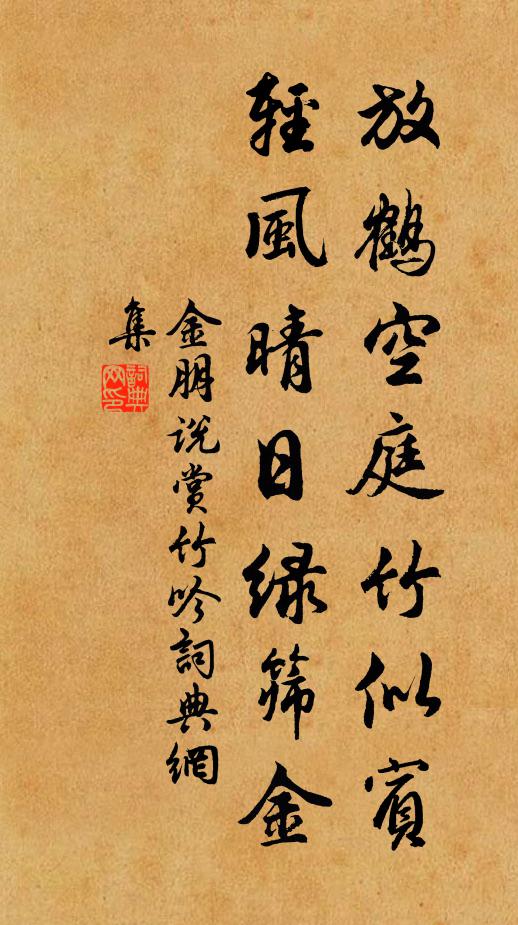 放鶴空庭竹似賓
輕風晴日綠篩金
金朋說賞竹吟詞典網
集
詞典網印